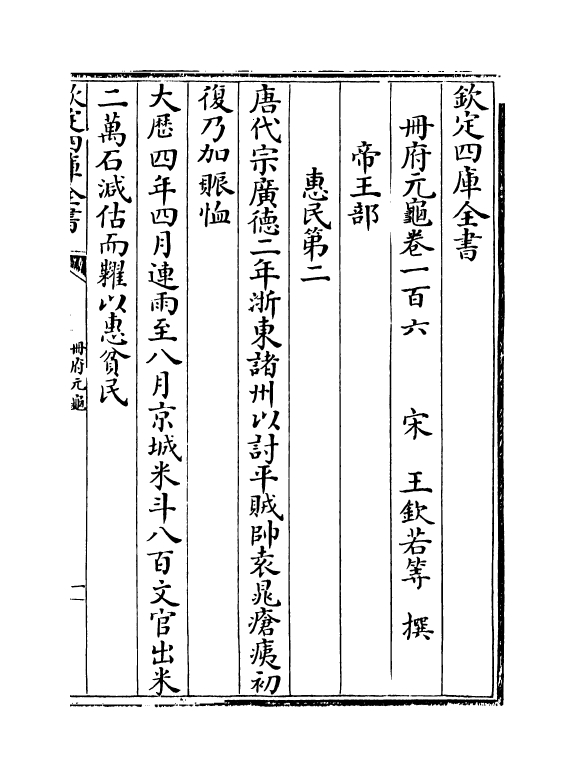 欽定四庫全書
冊府元龜卷一百六　宋　王欽若等　撰
帝王部
惠民第二
唐代宗廣德二年浙東諸州以討平賊帥袁晁瘡痍初
復乃加賑恤
大厯四年四月連雨至八月京城米斗八百文官出米
二萬石減估而糶以惠貧民
欽定四庫全書
冊府元龜
一